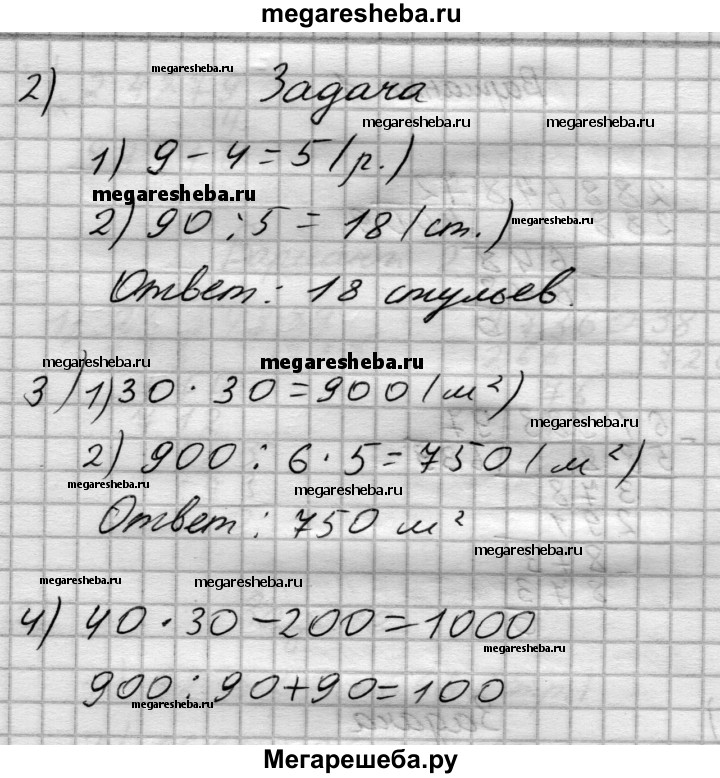 megaresheba.ru
megaresheba.ru
2) Задача
megaresheba.ru megaresheba.ru
1) 9 - 4 = 5 (р.)
megaresheba.ru
2) 90 : 5 = 18 (ст.)
megaresheba.ru
Ответ: 18 стульев.
megaresheba.ru megaresheba.ru
3) 1) 30 · 30 = 900 (м²)
megaresheba.ru
2) 900 : 6 · 5 = 750 (м²)
megaresheba.ru megaresheba.ru
Ответ: 750 м²
megaresheba.ru
megaresheba.ru megaresheba.ru
4) 40 · 30 - 200 = 1000
megaresheba.ru
900 : 90 + 90 = 100
megaresheba.ru
Мегарешеба.ру